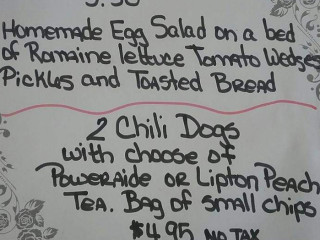 Homemade Egg Salad on a bed
of Romaine lettuce Tomato Wedges
Pickles and Toasted Bread
2 Chili Dogs
with choose of
Poweraide or Lipton Peach
Tea. Bag of small chips
$4.95 no tax